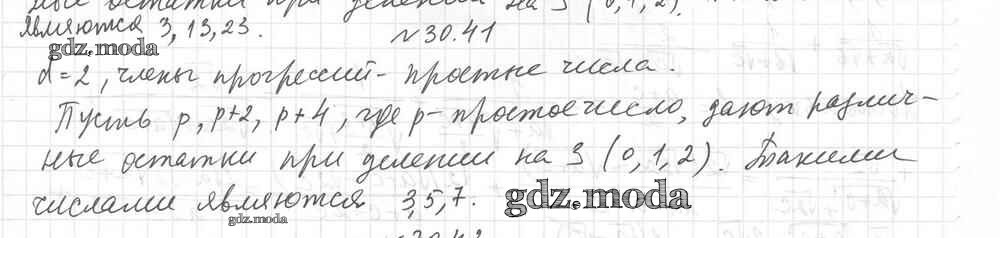 ные остатки при делении на 3 (0,1,2).
являются 3, 13, 23.
№30.41
gdz.moda
d=2, члены прогрессий - простые числа.
Пусть p, p+2, p+4, где p - простое число, дают различ-
ные остатки при делении на 3 (0,1,2). Такими
числами являются 3,5,7.
gdz.moda
gdz.moda